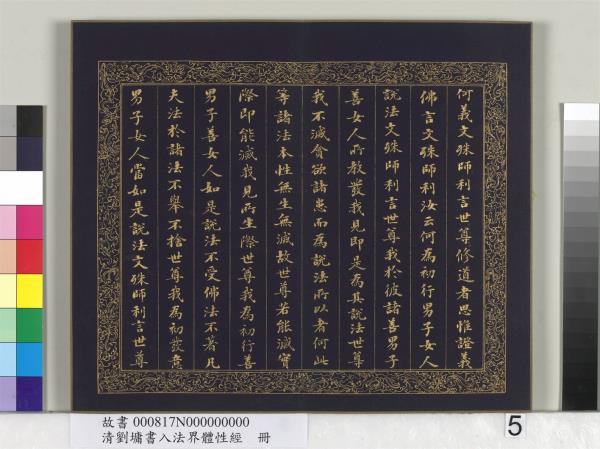 何義文殊師利言世尊修道者思惟證義
佛言文殊師利汝云何為初行男子女人
說法文殊師利言世尊我於彼諸善男子
善女人所教發我見即是為其說法世尊
我不滅貪欲諸患而為說法所以者何此
等諸法本性無生無滅故世尊若能滅實
際即能滅我見所生際世尊我為初行善
男子善女人如是說法不受佛法不著凡
夫法於諸法不舉不捨世尊我為初發意
男子女人當如是說法文殊師利言世尊
故書 000817N000000000
清劉墉書入法界體性經 冊
5